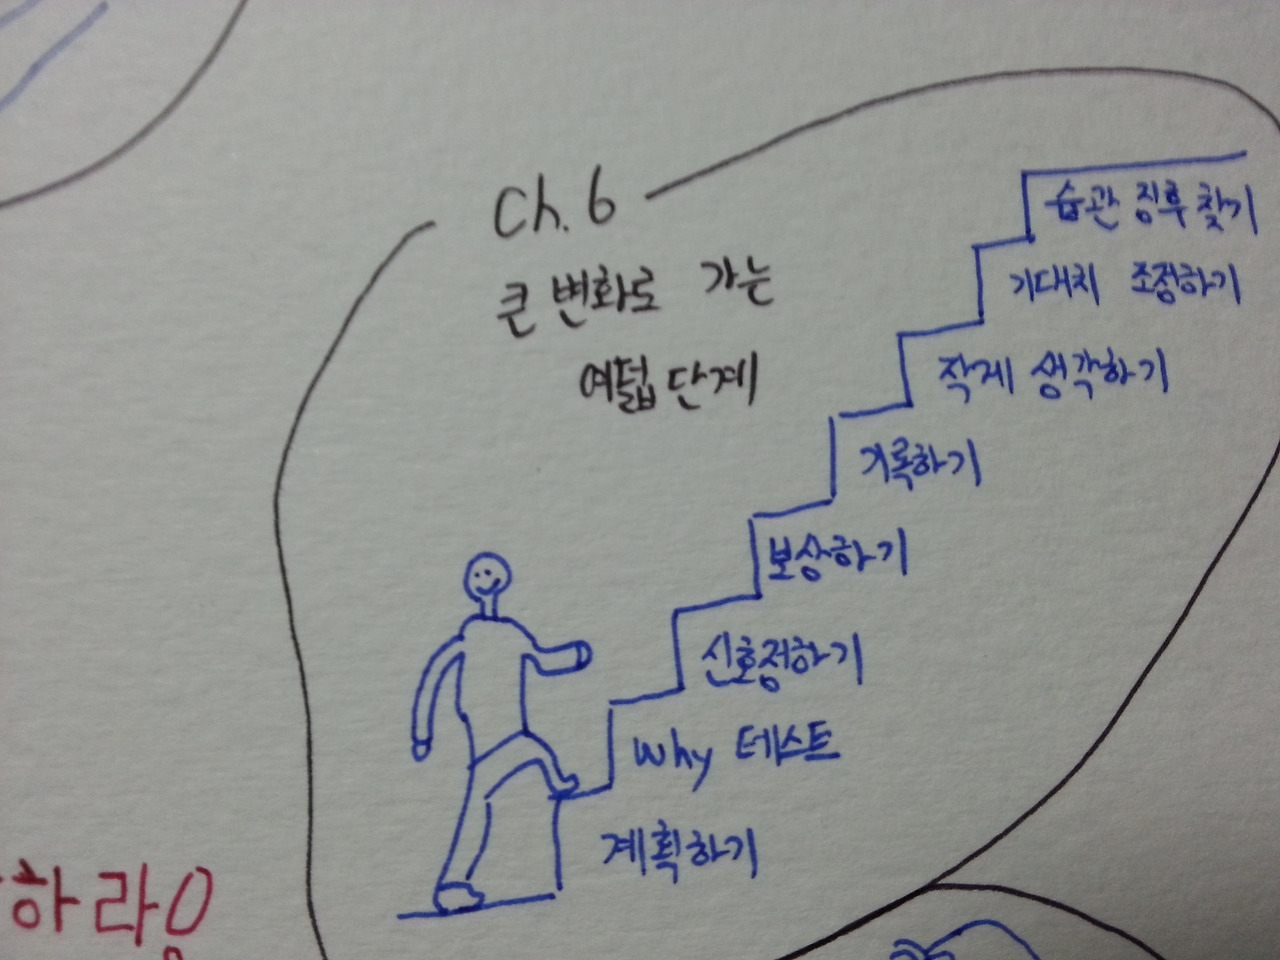 Ch. 6
큰 변화로 가는
여덟 단계
습관 징후 찾기
기대치 조정하기
작게 생각하기
기록하기
보상하기
신호정하기
Why 테스트
계획하기
하라!